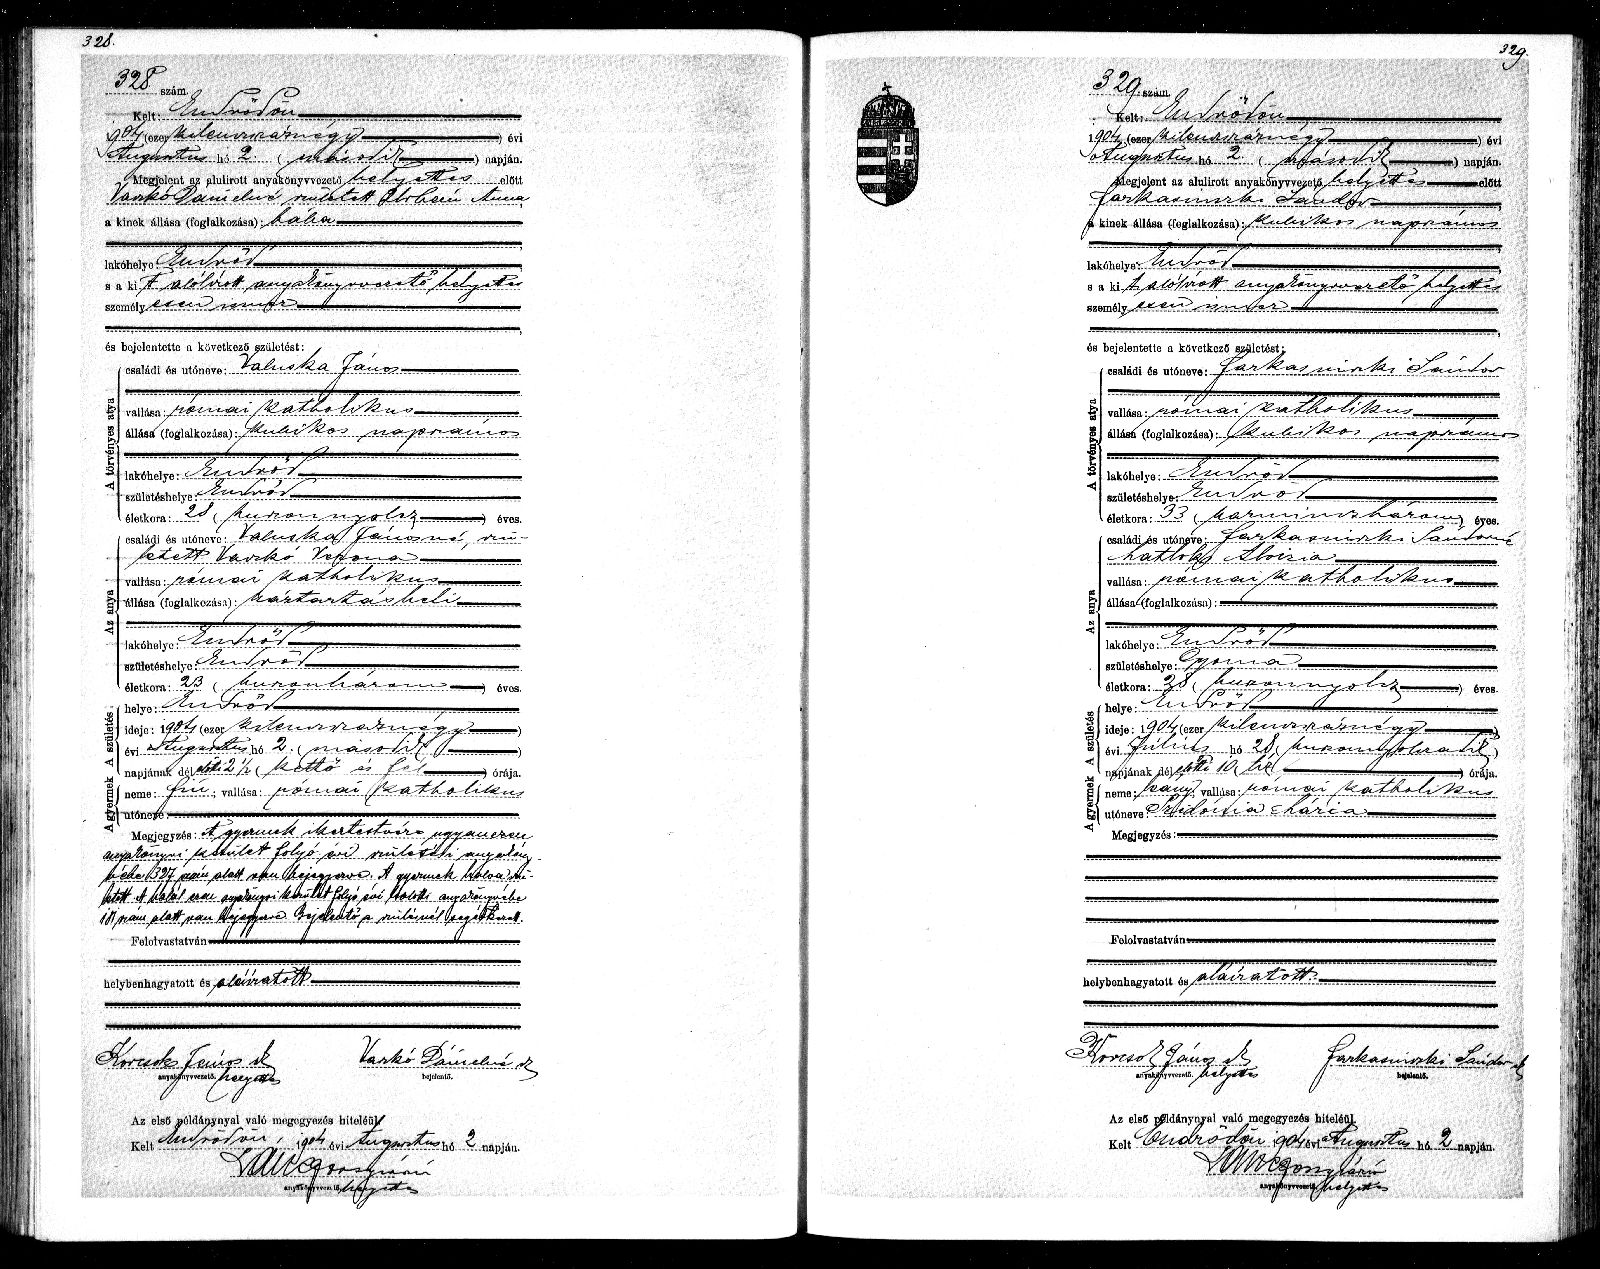 328.
328 szám.
Kelt: Endrődön
1904 (ezer kilenczszáznégy) évi
Augusztus hó 2 (második) napján.
Megjelent az alulirott anyakönyvvezető helyettes előtt
Varkó Dánielné született Anna,
a kinek állása (foglalkozása): bába
lakóhelye Endrőd
s a kit alólírott anyakönyvvezető helyettes
személyesen ismer
és bejelentette a következő születést:
A törvényes atya
családi és utóneve: Valuska János
vallása: római katholikus
állása (foglalkozása): kubikos napszámos
lakóhelye: Endrőd
születéshelye: Endrőd
életkora: 28 (huszonnyolcz) éves.
Az anya
családi és utóneve: Valuska Jánosné, szü-
letett Varkó Verona
vallása: római katholikus
állása (foglalkozása): háztartásbeli
lakóhelye: Endrőd
születéshelye: Endrőd
életkora: 23 (huszonhárom) éves.
A születés
helye: Endrőd
ideje: 1904 (ezer kilenczszáznégy)
évi Augusztus hó 2. (második)
napjának délelőtti 2 1/2 (kettő és fél) órája.
A gyermek
neme: fiú; vallása: római katholikus
utóneve:
Megjegyzés: A gyermek ikertestvére ugyanezen
anyakönyvi kerület folyó évi születési anyakönyv
327 szám alatt van bejegyezve. A gyermek halva szü-
letett. A halál ezen anyakönyvi kerület folyó évi halotti anyakönyvébe
szám alatt van bejegyezve. Bejelentő a szülésnél segédkezett.
Felolvastatván
helybenhagyatott és aláíratott
Korcsok János sk Varkó Dánielné sk
anyakönyvvezető. helyettes bejelentő.
Az első példánynyal való megegyezés hiteléül
Kelt Endrődön, 1904 évi Augusztus hó 2 napján.
anyakönyvvezető, helyettes
329.
329. szám.
Kelt: Endrődön
1904 (ezer kilenczszáznégy) évi
Augusztus hó 2. (második) napján.
Megjelent az alulirott anyakönyvvezető helyettes előtt
Farkasinszki Sándor
a kinek állása (foglalkozása): kubikos napszámos
lakóhelye: Endrőd
s a kit alólírott anyakönyvvezető helyettes
személyesen ismer
és bejelentette a következő születést:
A törvényes atya
családi és utóneve: Farkasinszki Sándor
vallása: római katholikus
állása (foglalkozása): kubikos napszámos
lakóhelye: Endrőd
születéshelye: Endrőd
életkora: 33 (harminczhárom) éves.
Az anya
családi és utóneve: Farkasinszki Sándorné
Aloizia
vallása: római katholikus
állása (foglalkozása):
lakóhelye: Endrőd
születéshelye: Gyoma
életkora: 28 (huszonnyolcz) éves.
A születés
helye: Endrőd
ideje: 1904 (ezer kilenczszáznégy)
évi Július hó 28 (huszonnyolczadik)
napjának délelőtti 10 (tíz) órája.
A gyermek
neme: leány; vallása: római katholikus
utóneve: Szidónia Mária
Megjegyzés:
Felolvastatván
helybenhagyatott és aláíratott.
Korcsok János sk Farkasinszki Sándor sk
anyakönyvvezető. helyettes bejelentő.
Az első példánynyal való megegyezés hiteléül
Kelt Endrődön 1904 évi Augusztus hó 2 napján.
anyakönyvvezető, helyettes